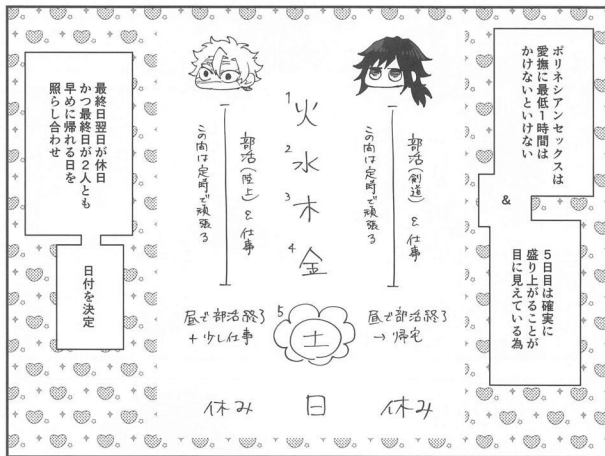 ポリネシアンセックスは
愛撫に最低1時間は
かけないといけない
&
5日目は確実に
盛り上がることが
目に見えている為
部活(剣道)&仕事
この間は定時で頑張る
昼で部活終了
→帰宅
休み
1 火
2 水
3 木
4 金
5 土
日
部活(陸上)&仕事
この間は定時で頑張る
昼で部活終了
+少し仕事
休み
最終日翌日が休日
かつ最終日が2人とも
早めに帰れる日を
照らし合わせ
日付を決定